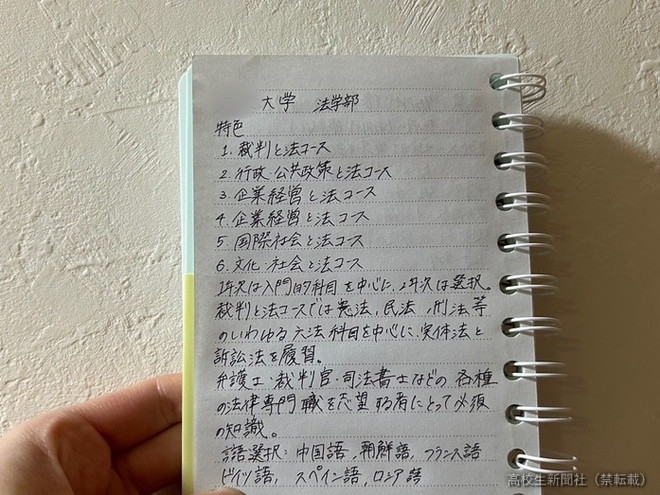 大学 法学部
特色
1. 裁判と法コース
2. 行政・公共政策と法コース
3. 企業経営と法コース
4. 企業経営と法コース
5. 国際社会と法コース
6. 文化・社会と法コース
1年次は入門的科目を中心に、2年次は選択。
裁判と法コースでは憲法、民法、刑法等
のいわゆる六法科目を中心に、実体法と
訴訟法を履習。
弁護士・裁判官・司法書士などの各種
の法律専門職を志望する者にとって必須
の知識。
語選択：中国語、朝鮮語、フランス語
ドイツ語、スペイン語、ロシア語
高校生新聞社（禁転載）